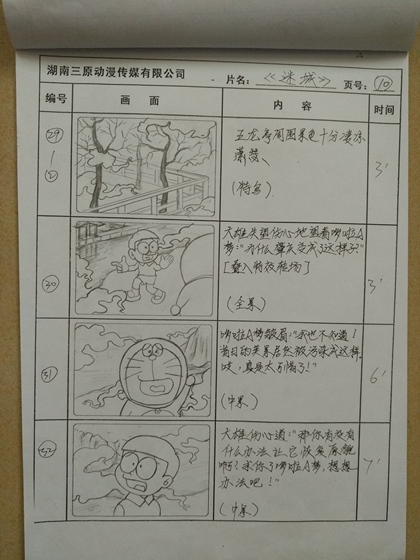 湖南三原动漫传媒有限公司 片名:《迷城》 页号:⑩
编号 画面 内容 时间
㉙
②
五龙寺周围景色十分凄凉
萧瑟、
(特写)
3'
㉚
大雄失望伤心地望着哆啦A
梦:"为什么肇庆变成了这样子?"
(全景)
3'
㉛
哆啦A梦皱眉:"我也不知道!
昔日的美景居然被污染成这样,
哎,真是太可惜了!"
(中景)
6'
大雄伤心道:"那你有没有
什么办法让它恢复原貌
啊?求你了哆啦A梦,想想
办法吧!"
(中景)
7'